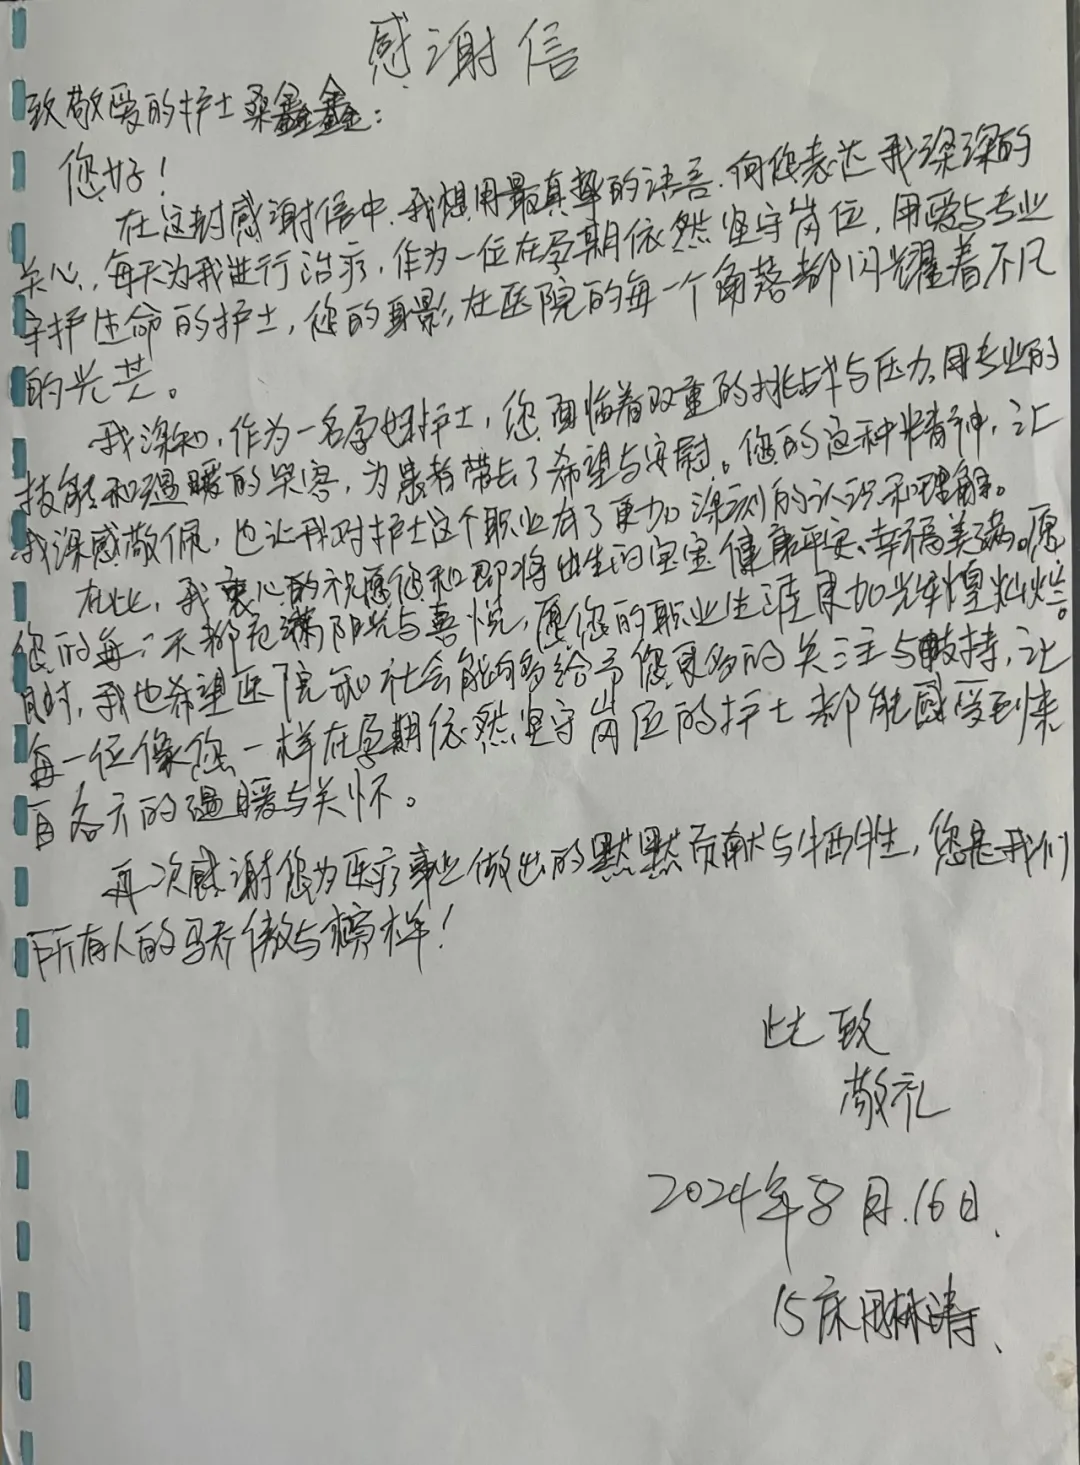 感谢信
致敬爱的护士桑鑫鑫：
您好！
在这封感谢信中、我想用最真挚的语言、向您表达我深深的
关心，每天为我进行治疗，作为一位在孕期依然坚守岗位，用爱与专业
守护生命的护士，您的身影，在医院的每一个角落都闪耀着不凡
的光芒。
我深知，作为一名孕妈护士，您面临着双重的挑战与压力、用专业的
技能和温暖的笑容，为患者带去了希望与安慰。您的这种精神，让
我深感敬佩，也让我对护士这个职业有了更加深刻的认识和理解。
在此，我衷心的祝愿您和即将出生的宝宝健康平安、幸福美满。愿
您的每一天都充满阳光与喜悦，愿您的职业生涯更加光辉煌灿烂。
同时，我也希望医院和社会能够多给予您更多的关注与支持，让
每一位像您一样在孕期依然坚守岗位的护士都能感受到来
自各方的温暖与关怀。
再次感谢您为医疗事业做出的默默贡献与牺牲，您是我们
所有人的骄傲与榜样！
此致
敬礼
2024年8月.16日、
15床周林涛、